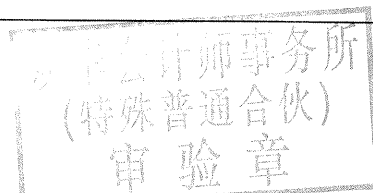 会计师事务所
(特殊普通合伙)
审验章